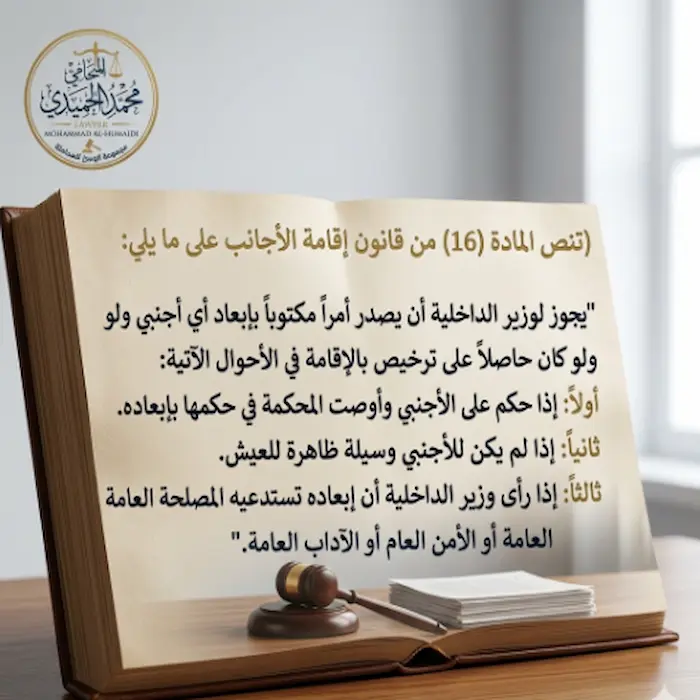 المحامي
محمد الحميدي
LAWYER
MOHAMMAD AL-HUMAIDI
(تنص المادة (16) من قانون إقامة الأجانب على ما يلي:
"يجوز لوزير الداخلية أن يصدر أمراً مكتوباً بإبعاد أي أجنبي ولو
ولو كان حاصلاً على ترخيص بالإقامة في الأحوال الآتية:
أولاً: إذا حكم على الأجنبي وأوصت المحكمة في حكمها بإبعاده.
ثانياً: إذا لم يكن للأجنبي وسيلة ظاهرة للعيش.
ثالثاً: إذا رأى وزير الداخلية أن إبعاده تستدعيه المصلحة العامة
العامة أو الأمن العام أو الآداب العامة."